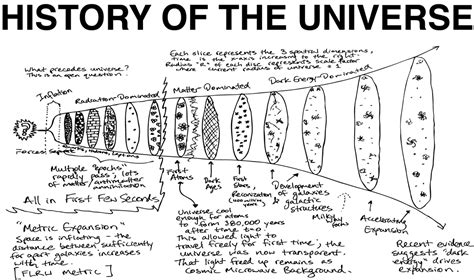 HISTORY OF THE UNIVERSE
Each slice represents the 3 spatial dimensions,
time is the x-axis increasing to the right.
Radius "R" of each disc represents scale factor
where current radius of universe = 1
What precedes universe?
This is an open question.
Inflation
Radiation Dominated
Matter Dominated
Dark Energy Dominated
Forces:
Multiple "epochs"
rapidly pass; lots
of matter/antimatter
annihilation
All in First Few Seconds
First
Atoms
Dark
Ages
First
Stars
Reionization
of galaxies
Development
of galaxies
& galactic
structures
Milky
Way
forms
Accelerating
Expansion
Universe cool
enough for atoms
to form 380,000 years
after time zero
This allowed light to
travel freely for first time;
the universe was now transparent.
That light freed up remains as
Cosmic Microwave Background.
"Metric Expansion"
Space is inflating - the
distances between sufficiently
far apart galaxies increases
with time.
[FLRW Metric]
Recent evidence
suggests "dark
energy" drives
expansion.